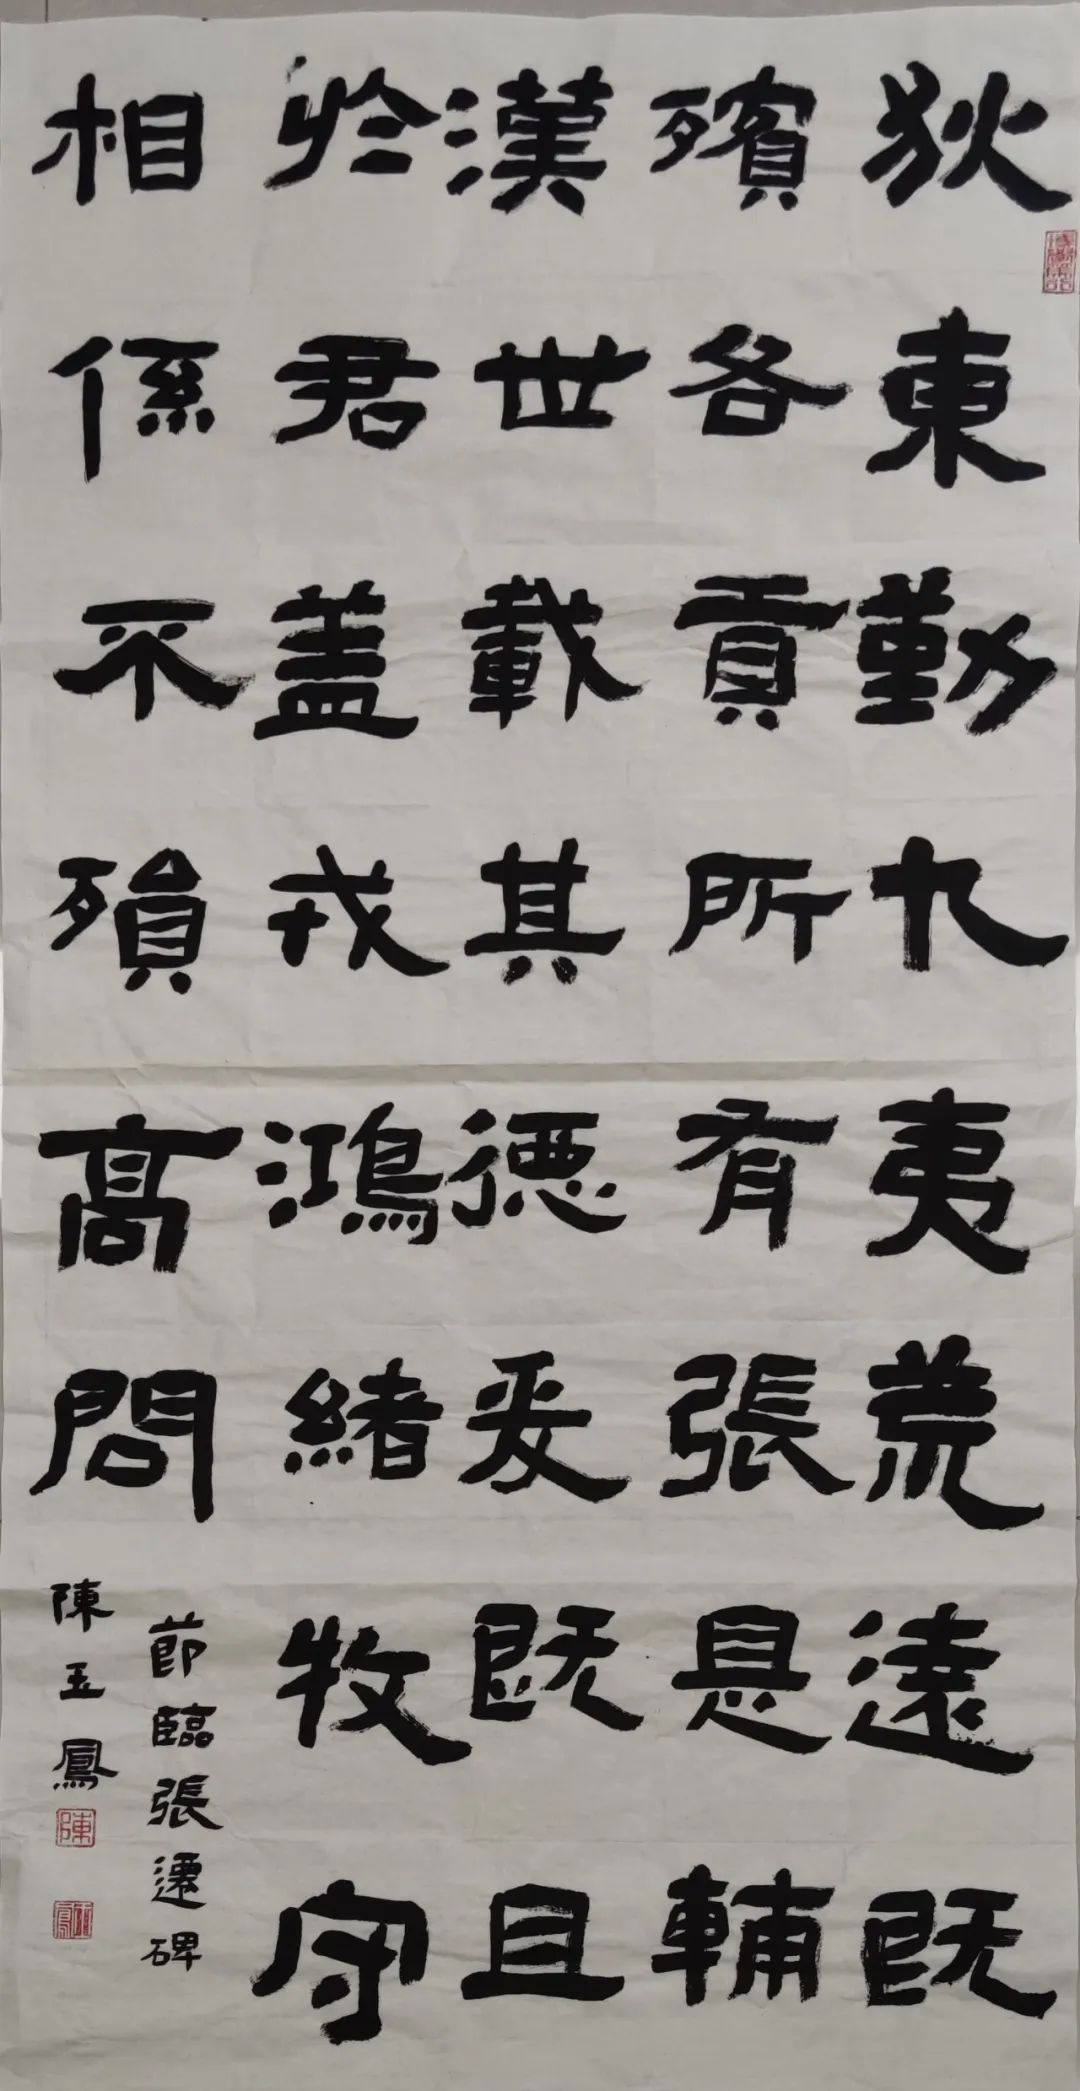 狄東勤九夷荒遠既
殯各貢所有張是輔
漢世載其德爰既且
於君盖戎鴻緒牧守
相係不殞高問
節臨張遷碑
陳玉鳳
陳
玉鳳